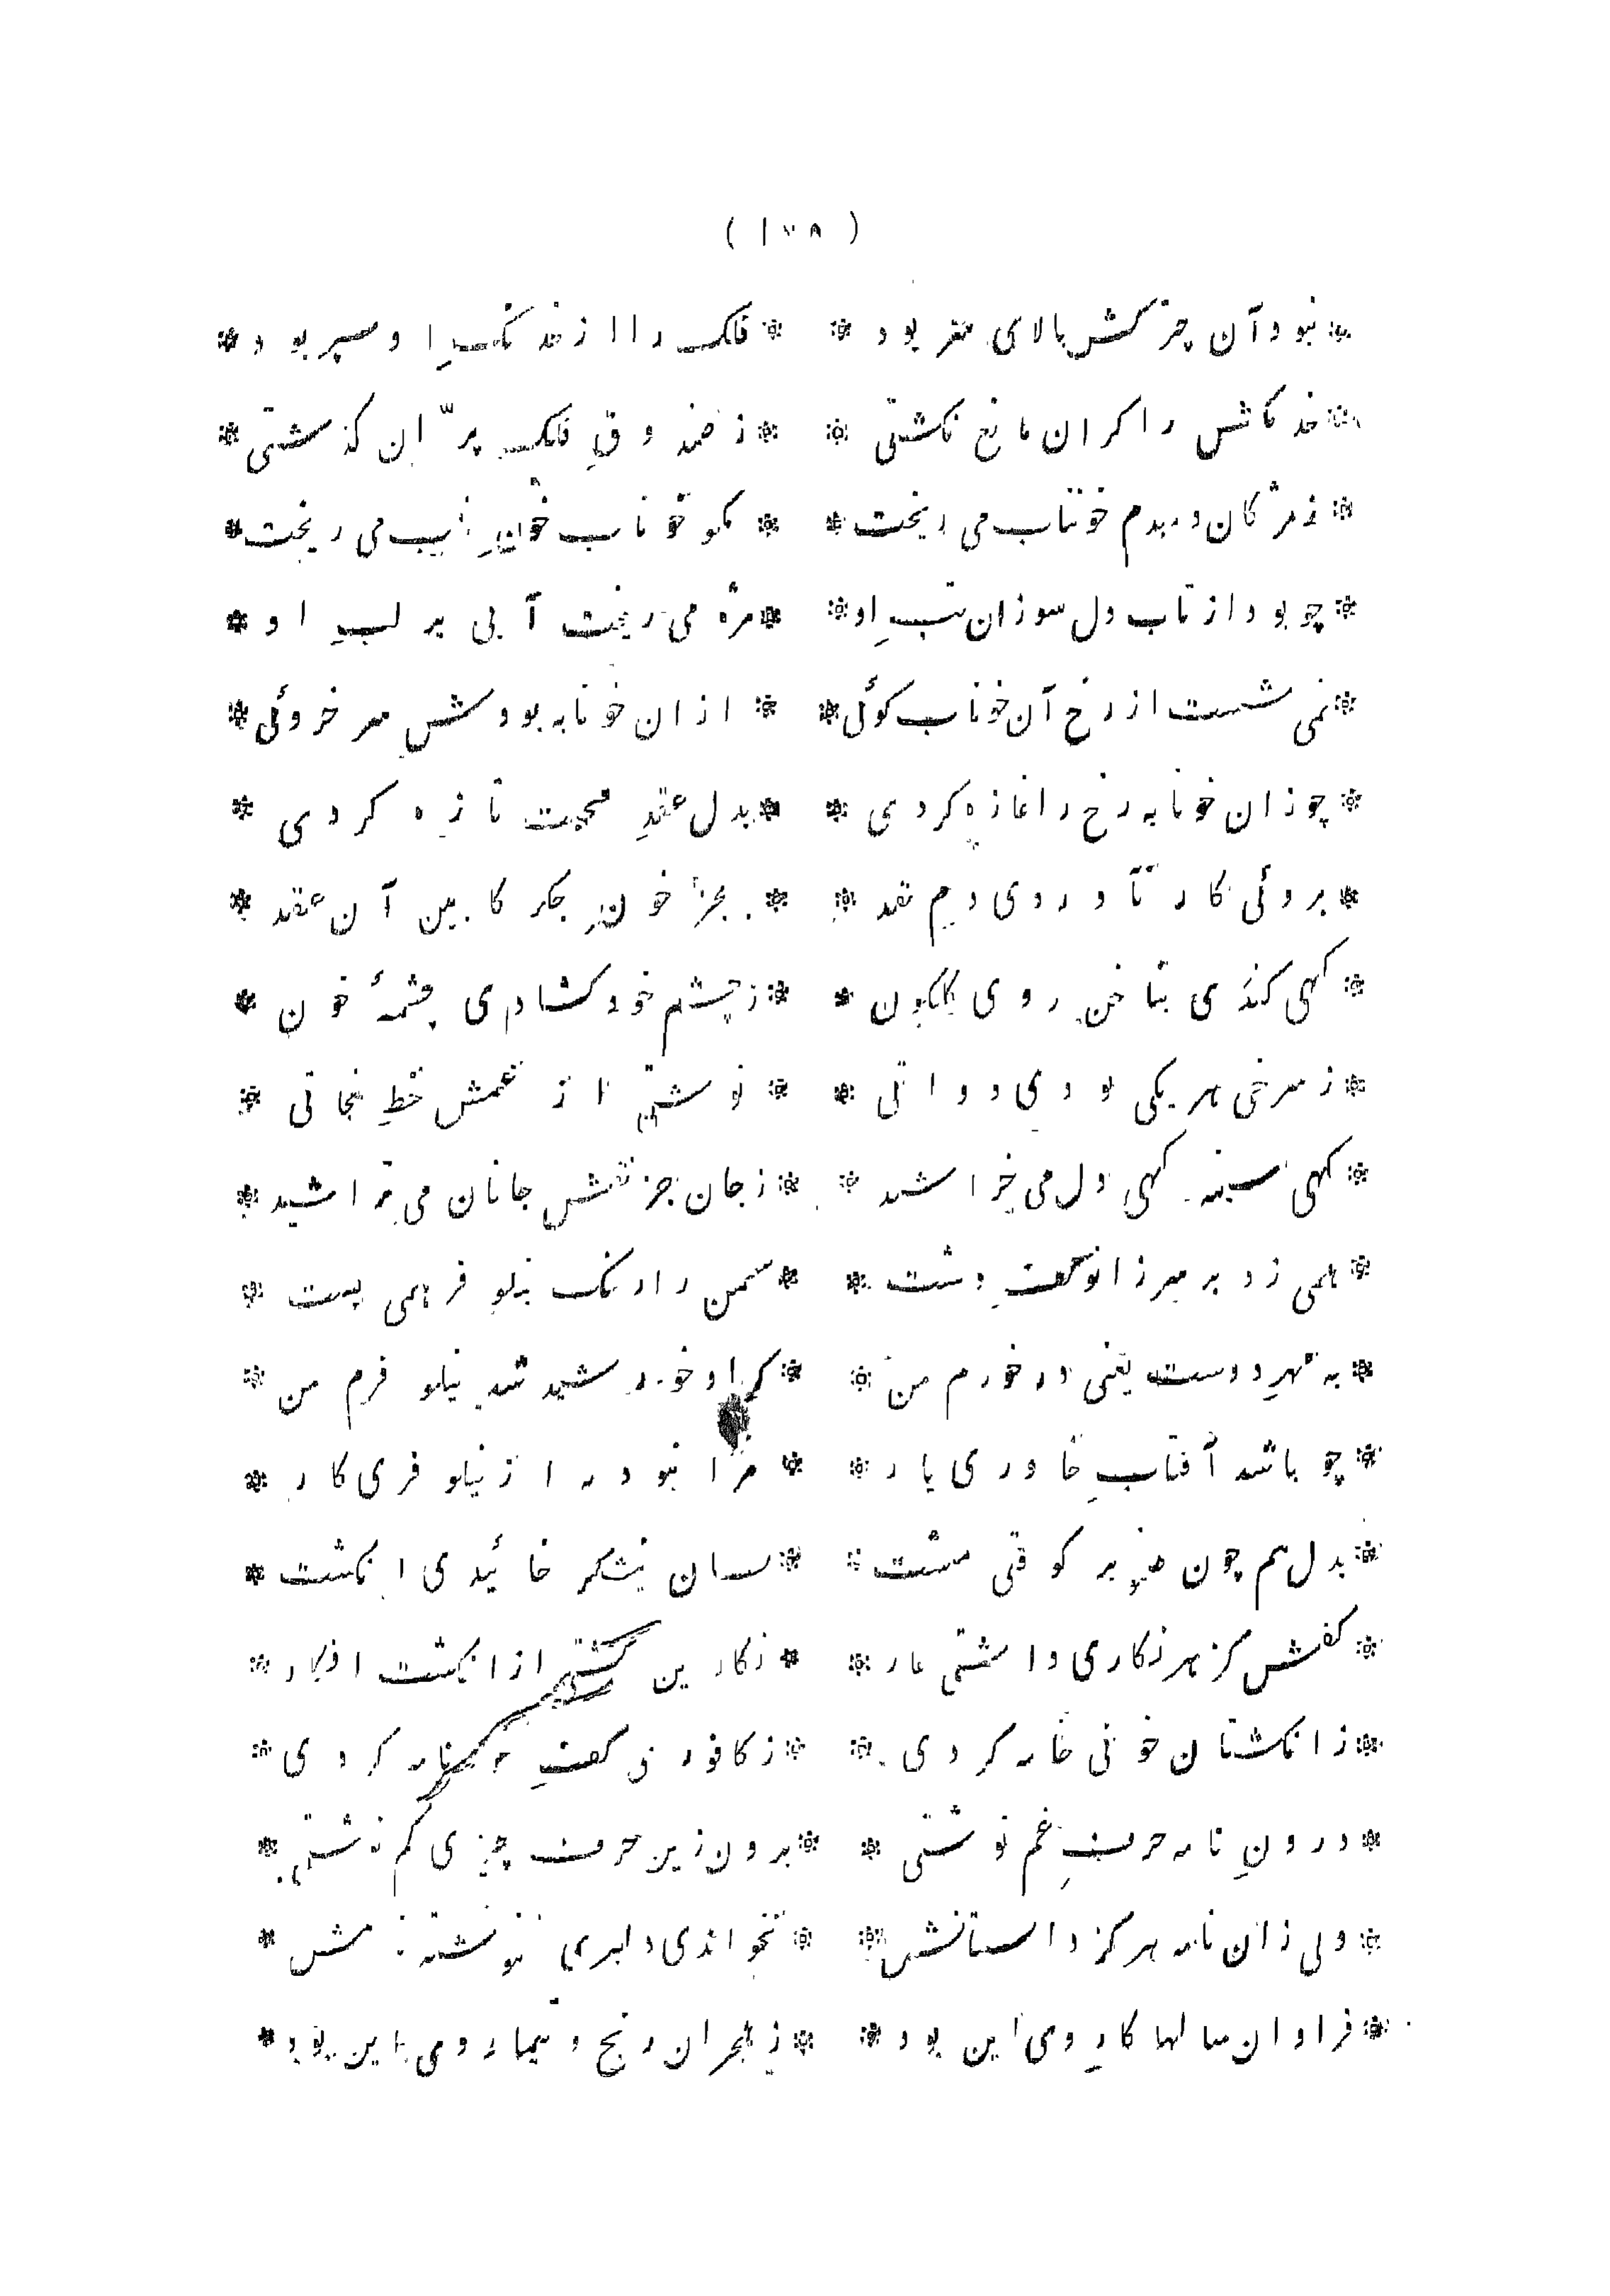 ( ۱۷۸ )
* نبود آن چتر کش بالای سر بود * * فلک را از خدنگِ او سپر بود *
* خدنکش را کر ان مانع نکشتی * * ز صندوقِ فلک پرّان کذشتی *
* ز مژکان دمبدم خوناب می ریخت * * مکو خوناب خونِ ناب می ریخت *
* چو بود از تاب دل سوزان تبِ او * * مژه می ریخت آبی بر لبِ او *
* نمی شست از رخ آن خوناب کوئی * * ازان خونابه بودش سرخروئی *
* چو زان خونابه رخ را غازه کردی * * بدل عقدِ محبت تازه کردی *
* بروئی کار تا آورد وی نقد * * بجز خونِ جکر کابین آن عقد *
* کهی کندی بناخن روی کلکون * * ز چشم خود کشادی چشمهٔ خون *
* ز سرخی هر یکی بودی دواتی * * نوشتی از غمش خطِ نجاتی *
* کهی سینه کهی دل می خراشید * * ز جان جز نقشِ جانان می تراشید *
* همی زد بر سر زانو کفِ دست * * سمن را رنک نیلوفر همی بست *
* به مهرِ دوست یعنی در خورم من * * کر او خورشید شد نیلوفرم من *
* چو باشد آفتابِ خاوری یار * * مرا نبود به از نیلوفری کار *
* بدل هم چون صنوبر کوفتی مشت * * بسان نیشکر خائیدی انکشت *
* کفش کز هر نکاری داشتی عار * * نکارین کشتی از انکشت افکار *
* ز انکشتان خونی خامه کردی * * ز کافوری کفِ خود نامه کردی *
* درونِ نامه حرفِ غم نوشتی * * برون زین حرف چیزی کم نوشتی *
* ولی زان نامه هرکز داستانش * * نخواندی دلبری
* فراوان سالها کارِ وی این بود * * ز هجران رنج و تیمار وی این بود *